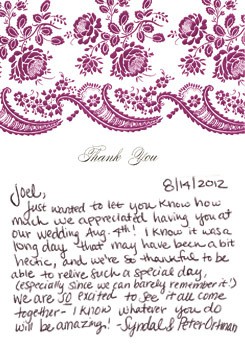 Thank You
8/14/2012
Joel,
Just wanted to let you know how
much we appreciated having you at
our wedding Aug. 4th! I know it was a
long day that may have been a bit
hectic, and we're so thankful to be
able to relive such a special day,
(especially since we can barely remember it!)
We are SO excited to see it all come
together - I know whatever you do
will be amazing! -Syndal & Peter Ortman